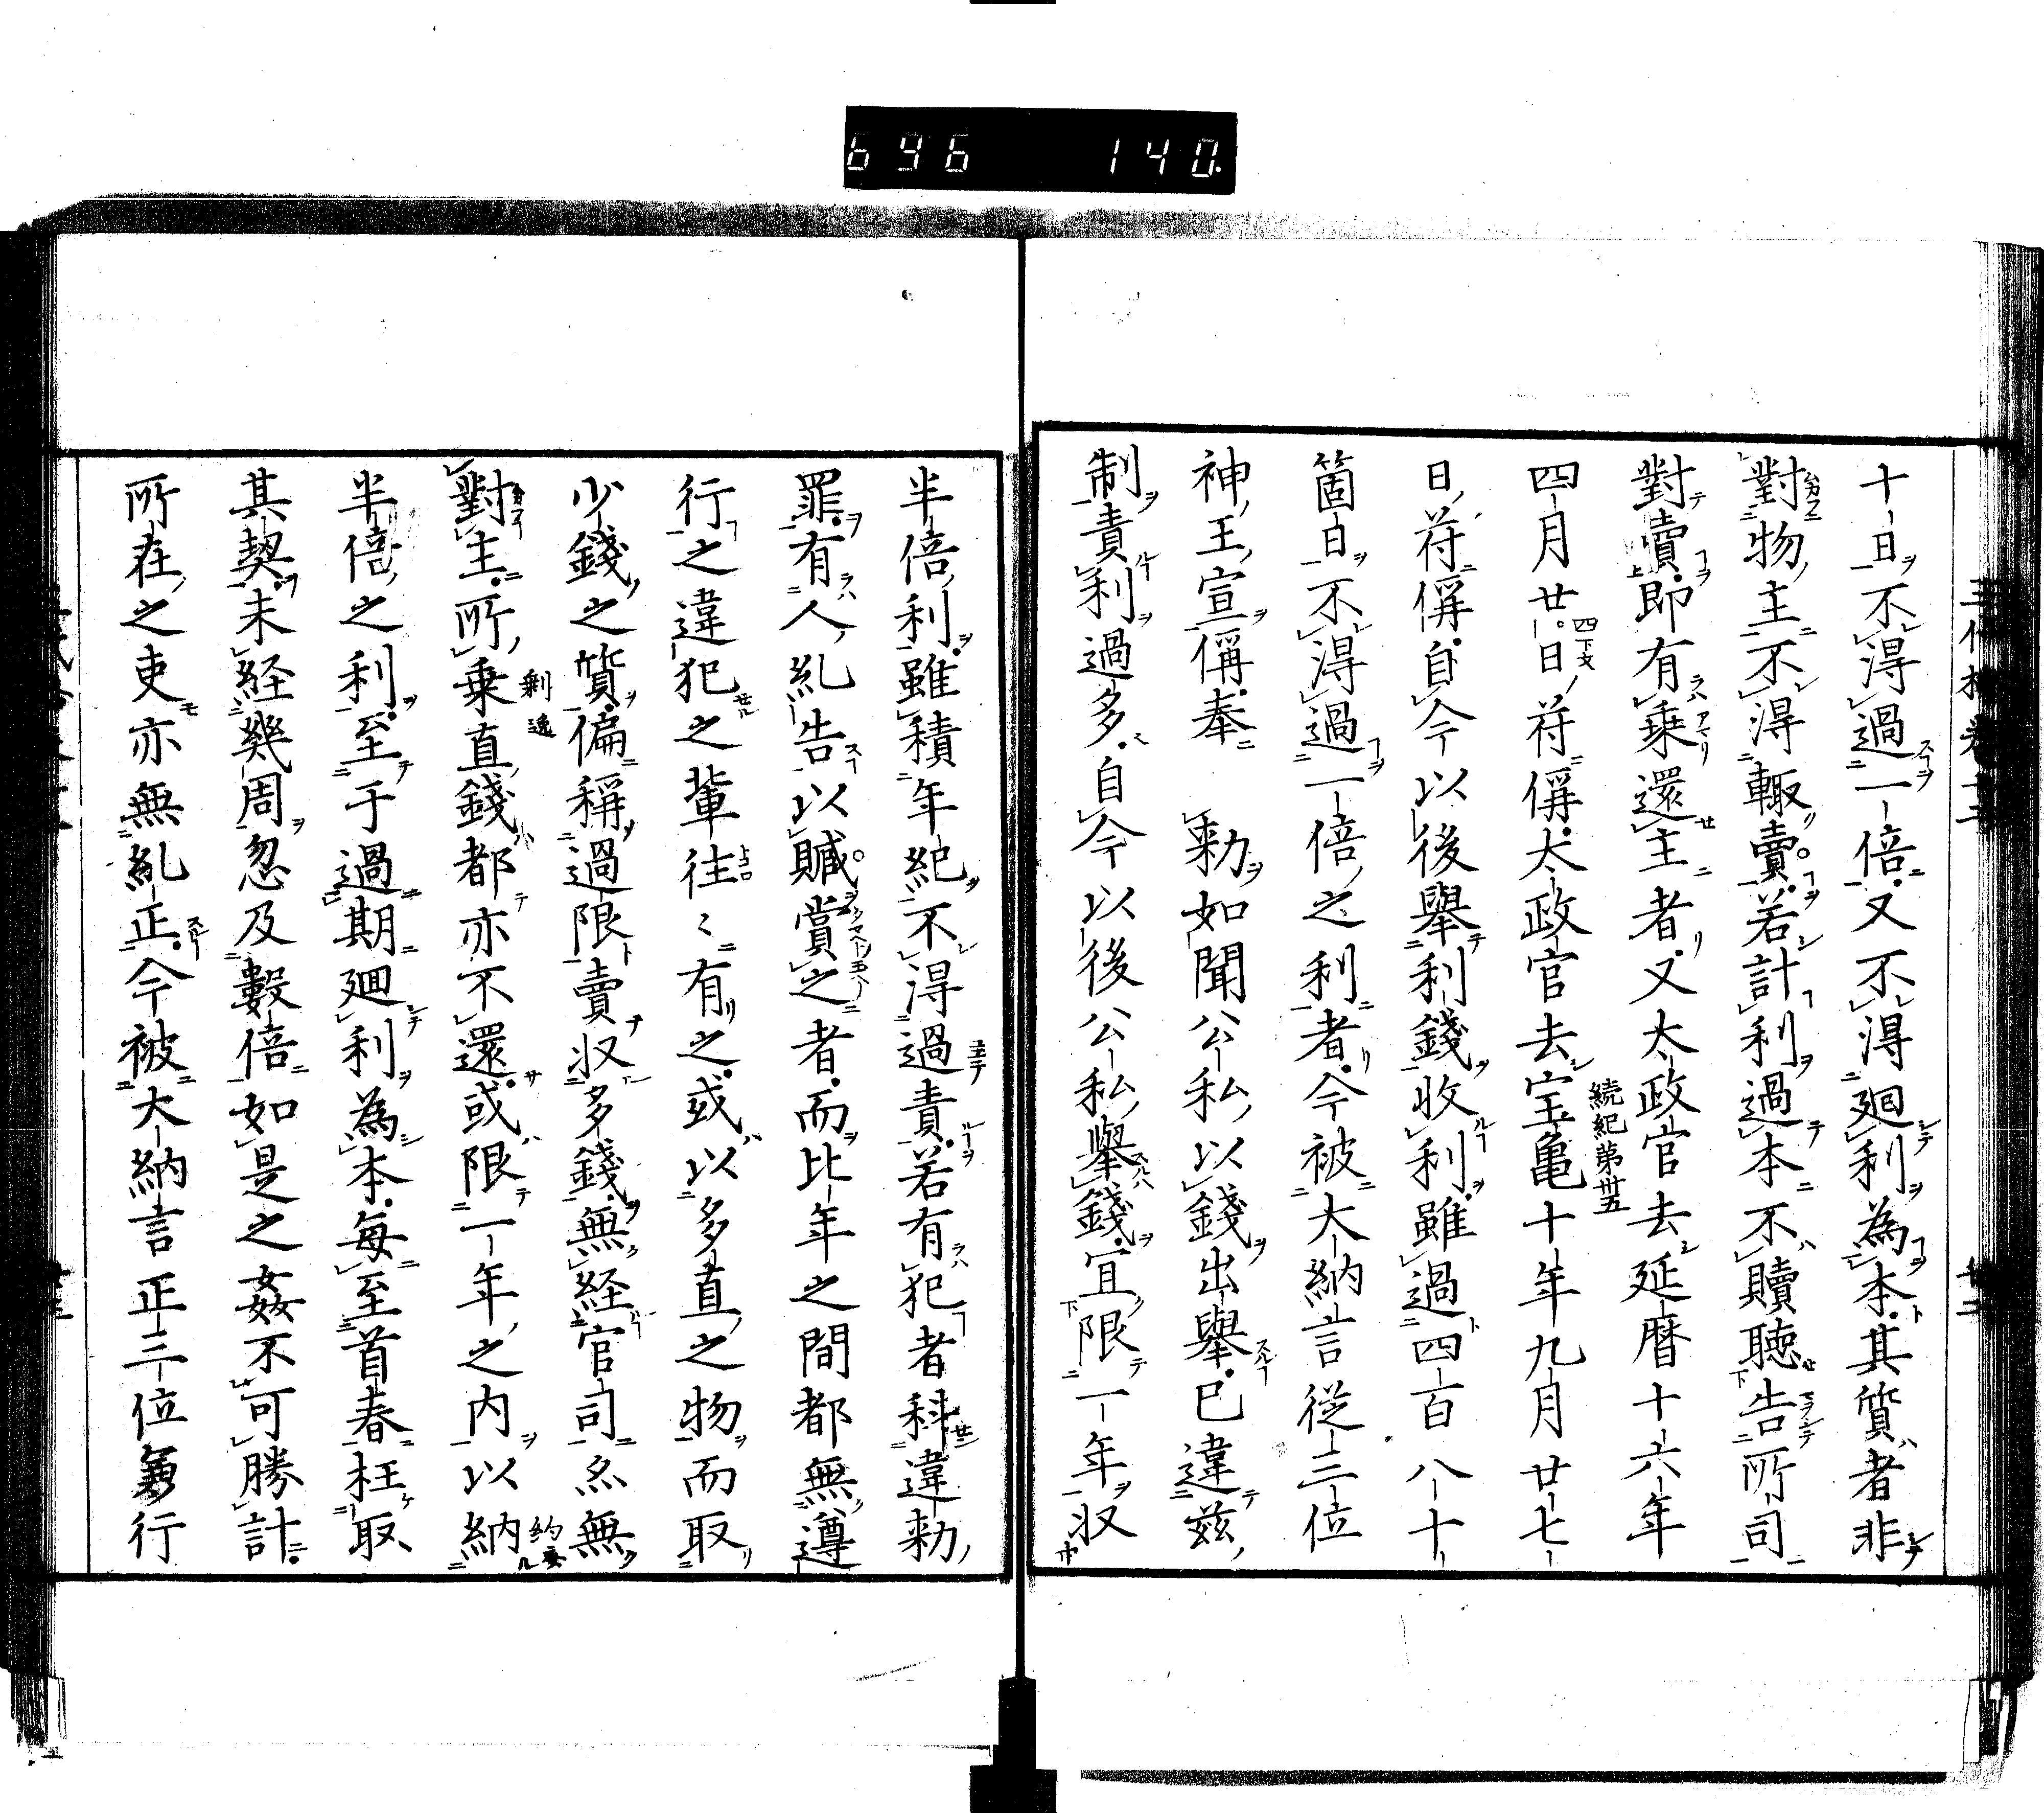 696 140
十日不得過一倍又不得廻利為本其質者非
對物主不得輙賣若計利過本不贖聴告所司
對賣即有乗還主者又太政官去延暦十六年
四月廿日符偁太政官去宝亀十年九月廿七
四下文
続紀第卅五
日符偁自今以後擧利錢收利雖過四百八十
箇日不得過一倍之利者今被大納言従三位
神王宣偁奉　勅如聞公私以錢出擧已違茲
制責利過多自今以後公私擧錢宜限一年収
半倍利雖積年紀不得過責若有犯者科違勅
罪有人糺告以贓賞之者而比年之間都無遵
行之違犯之輩往〻有之或以多直之物而取
少錢之質偏稱過限賣収多錢無経官司亦無
對主所乗直錢都亦不還或限一年之内以納
剩
約
半倍之利至于過期廻利為本毎至首春枉取
其契未経幾周忽及數倍如是之姦不可勝計
所在之吏亦無糺正今被大納言正三位兼行